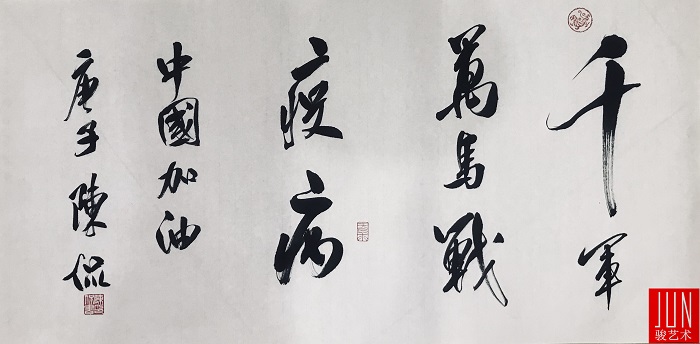 千軍
萬馬戰
疫病
中國加油
庚子 陳侃
JUN
骏艺术